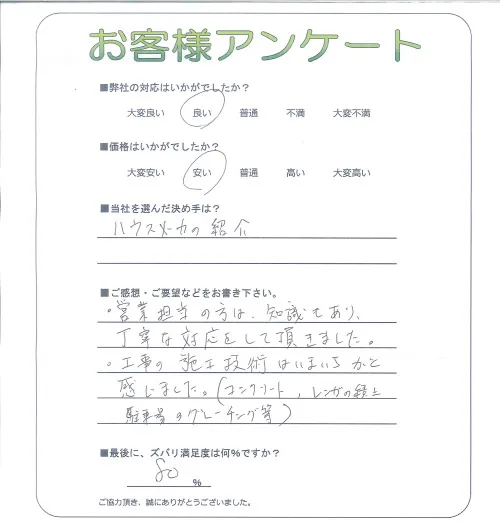 お客様アンケート
■弊社の対応はいかがでしたか？
大変良い 良い 普通 不満 大変不満
■価格はいかがでしたか？
大変安い 安い 普通 高い 大変高い
■当社を選んだ決め手は？
ハウスメーカの紹介
■ご感想・ご要望などをお書き下さい。
・営業担当の方は、知識もあり、
丁寧な対応をして頂きました。
・工事の施工技術はいまいちかと
感じました。(コンクリート、レンガの積上
駐車場のグレーチング等)
■最後に、ズバリ満足度は何%ですか？
80 %
ご協力頂き、誠にありがとうございました。